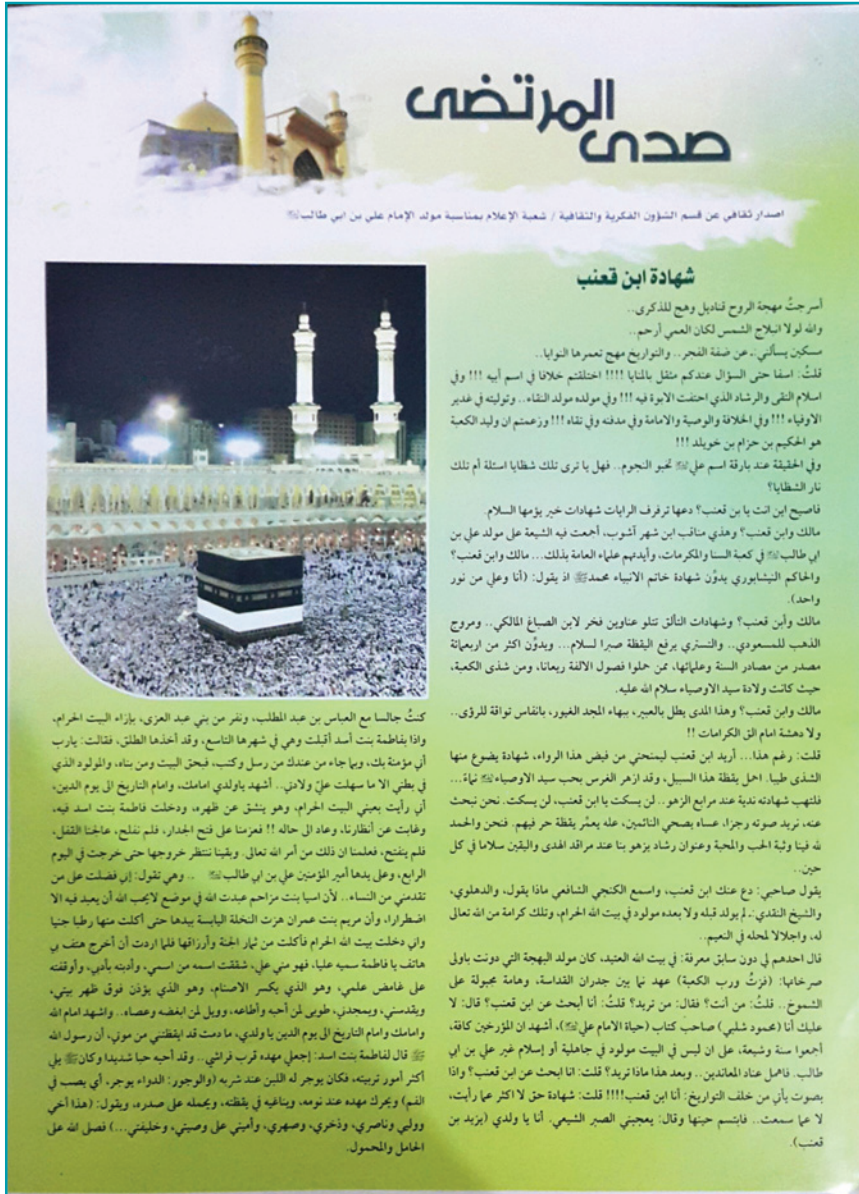 صدى
المرتضى
اصدار ثقافي عن قسم الشؤون الفكرية والثقافية / شعبة الإعلام بمناسبة مولد الإمام علي بن ابي طالب
شهادة ابن قعنب
أسرجتُ مهجة الروح قناديل وهج للذكرى..
والله لولا انبلاج الشمس لكان العمي أرحم..
مسكين يسألني: عن ضفة الفجر.. والتواريخ مهج تعمرها النوايا..
قلتُ: اسفا حتى السؤال عندكم مثقل بالمنايا !!!! اختلقتم خلافا في اسم أبيه !!! وفي
اسلام التقى والرشاد الذي احتفت الابوة فيه !!! وفي مولده مولد النقاء.. وتوليته في غدير
الاوفياء !!! وفي الخلافة والوصية والامامة وفي مدفنه وفي نقاه !!! وزعمتم ان وليد الكعبة
هو الحكيم بن حزام بن خويلد !!!
وفي الحقيقة عند بارقة اسم علي تخبو النجوم.. فهل يا ترى تلك شظايا اسئلة أم تلك
نار الشظايا؟
فاصيح اين انت يا بن قعنب؟ دعها ترفرف الرايات شهادات خير يؤمها السلام.
مالك وابن قعنب؟ وهذي مناقب ابن شهر آشوب، أجمعت فيه الشيعة على مولد علي بن
ابي طالب في كعبة السنا والمكرمات، وأيدتهم علماء العامة بذلك... مالك وابن قعنب؟
والحاكم النيشابوري يدوّن شهادة خاتم الانبياء محمد ﷺ اذ يقول: (أنا وعلي من نور
واحد).
مالك وأبن قعنب؟ وشهادات التألق تتلو عناوين فخر لابن الصباغ المالكي.. ومروج
الذهب للمسعودي.. والتستري يرفع اليقظة صبرا لسلام... ويدوّن اكثر من اربعمائة
مصدر من مصادر السنة وعلمائها، ممن حملوا فصول الالفة ريعانا، ومن شذى الكعبة،
حيث كانت ولادة سيد الاوصياء سلام الله عليه.
مالك وابن قعنب؟ وهذا المدى يطل بالعبير، ببهاء المجد الغيور، بانفاس تواقة للرؤى..
ولا دهشة امام الق الكرامات !!
قلت: رغم هذا... أريد ابن قعنب ليمنحني من فيض هذا الرواء، شهادة يضوع منها
الشذى طيبا. احمل يقظة هذا السبيل، وقد ازهر الغرس بحب سيد الاوصياء نماة...
فلتهب شهادته ندية عند مرابع الزهو.. لن يسكت يا ابن قعنب، لن يسكت. نحن نبحث
عنه، نريد صوته رجزا، عساه يصحي النائمين، عله يعمّر يقظة حر فيهم. فنحن والحمد
لله فينا وثبة الحب والمحبة وعنوان رشاد يزهو بنا عند مراقد الهدى واليقين سلاما في كل
حين..
يقول صاحبي: دع عنك ابن قعنب، واسمع الكنجي الشافعي ماذا يقول، والدهلوي،
والشيخ النقدي:. لم يولد قبله ولا بعده مولود في بيت الله الحرام، وتلك كرامة من الله تعالى
له، واجلالا لمحله في النعيم..
قال احدهم لي دون سابق معرفة: في بيت الله العتيد، كان مولد البهجة التي دونت باولى
صرخاتها: (فزتُ ورب الكعبة) عهد نما بين جدران القداسة، وهامة مجبولة على
الشموخ.. قلتُ: من أنت؟ فقال: من تريد؟ قلتُ: أنا أبحث عن ابن قعنب؟ قال: لا
عليك أنا (محمود شلبي) صاحب كتاب (حياة الامام علي)، أشهد ان المؤرخين كافة،
أجمعوا سنة وشيعة، على ان ليس في البيت مولود في جاهلية أو إسلام غير علي بن ابي
طالب. فاهمل عناد المعاندين.. وبعد هذا ماذا تريد؟ قلت: انا ابحث عن ابن قعنب؟ واذا
بصوت يأتي من خلف التواريخ: أنا ابن قعنب!!!! قلت: شهادة حق لا اكثر عما رأيت،
لا عما سمعت.. فابتسم حينها وقال: يعجبني الصبر الشيعي. أنا يا ولدي (يزيد بن
قعنب).
كنتُ جالسا مع العباس بن عبد المطلب، ونفر من بني عبد العزى، بإزاء البيت الحرام،
واذا بفاطمة بنت أسد أقبلت وهي في شهرها التاسع، وقد أخذها الطلق، فقالت: يارب
أني مؤمنة بك، وبما جاء من عندك من رسل وكتب، فبحق البيت ومن بناه، والمولود الذي
في بطني الا ما سهلت عليّ ولادتي.. أشهد ياولدي امامك، وامام التاريخ الى يوم الدين،
أني رأيت بعيني البيت الحرام، وهو ينشق عن ظهره، ودخلت فاطمة بنت اسد فيه،
وغابت عن أنظارنا، وعاد الى حاله !! فعزمنا على فتح الجدار، فلم نفلح، عالجنا القفل،
فلم ينفتح، فعلمنا ان ذلك من أمر الله تعالى. وبقينا ننتظر خروجها حتى خرجت في اليوم
الرابع، وعلى يدها أمير المؤمنين علي بن ابي طالب .. وهي تقول: إني فضلت على من
تقدمني من النساء.. لأن اسيا بنت مزاحم عبدت الله في موضع لايحب الله أن يعبد فيه الا
اضطرارا، وأن مريم بنت عمران هزت النخلة اليابسة بيدها حتى أكلت منها رطبا جنيا
واني دخلت بيت الله الحرام فأكلت من ثمار الجنة وأرزاقها فلما اردت أن أخرج هتف بي
هاتف يا فاطمة سميه عليا، فهو مني علي، شققت اسمه من اسمي، وأدبته بأدبي، وأوقفته
على غامض علمي، وهو الذي يكسر الاصنام، وهو الذي يؤذن فوق ظهر بيتي،
ويقدسني، ويمجدني، طوبى لمن أحبه وأطاعه، وويل لمن ابغضه وعصاه.. واشهد امام الله
وامامك وامام التاريخ الى يوم الدين يا ولدي، ما دمت قد ايقظتني من موتي، أن رسول الله
ﷺ قال لفاطمة بنت اسد: إجعلي مهده قرب فراشي.. وقد أحبه حبا شديدا وكان ﷺ يلي
أكثر أمور تربيته، فكان يوجر له اللبن عند شربه (والوجور: الدواء يوجر، أي يصب في
الفم) ويحرك مهده عند نومه، ويناغيه في يقظته، ويحمله على صدره، ويقول: (هذا أخي
ووليي وناصري، وذخري، وصهري، وأميني على وصيتي، وخليفتي...) فصلى الله على
الحامل والمحمول.